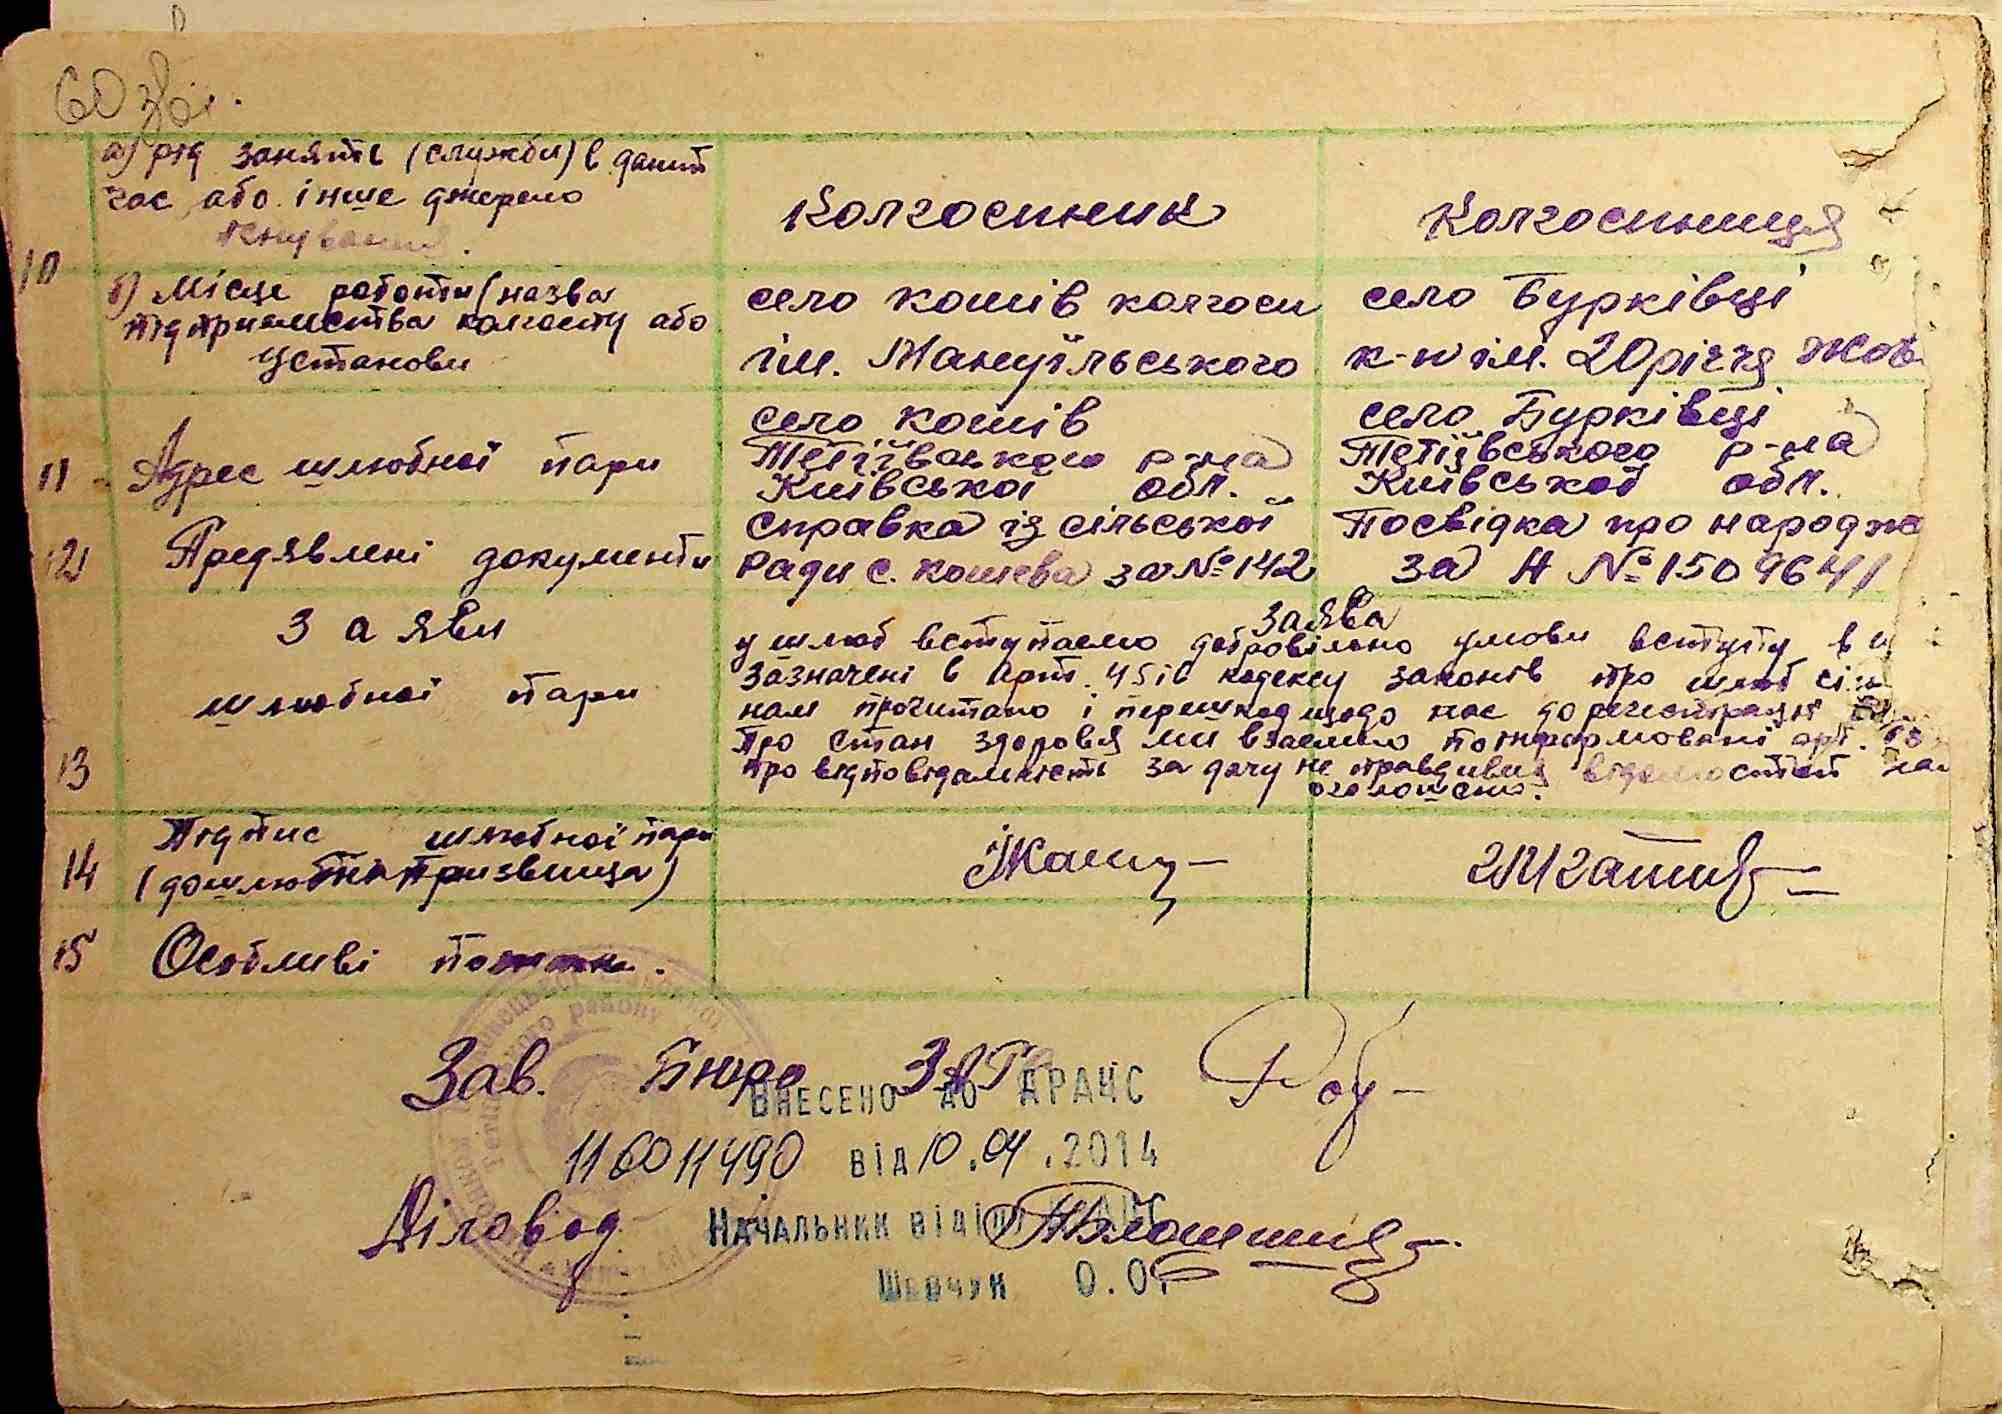 60 зв.
а) рід занять (служби) в даний
час або інше джерело
існування.
Колгоспник
Колгоспниця
10
б) Місце роботи (назва
підприємства колгоспу або
установи
село Кошів колгосп
ім. Мануїльського
село Бурківці
к-п ім. 20 річчя Жов
11 Адрес шлюбної пари
село Кошів
Тетіївського р-на
Київської обл.
село Бурківці
Тетіївського р-на
Київської обл.
12 Предявлені документи
справка із сільської
ради с. Кошева за № 142
Посвідка про народж
за Н № 1509641
13
Заяви
шлюбної пари
Заява
у шлюб вступаємо добровільно умови вступу в ш
зазначені в арт. 4 5 і 6 кодексу законів про шлюб сім
нам прочитано і перешкод щодо нас до реєстрації
Про стан здоровя ми взаємно поінформовані арт.
про відповідальність за дачу не правдивих відомостей нам
оголошено.
14 Підпис шлюбної пари
(дошлюбні призвища)
15 Особливі помітки.
Зав. Бюро ЗАГС
Внесено до ДРАЦС
116011490 від 10.04.2014
Діловод
Начальник відділу ДРАЦС
Шевчук О.О.